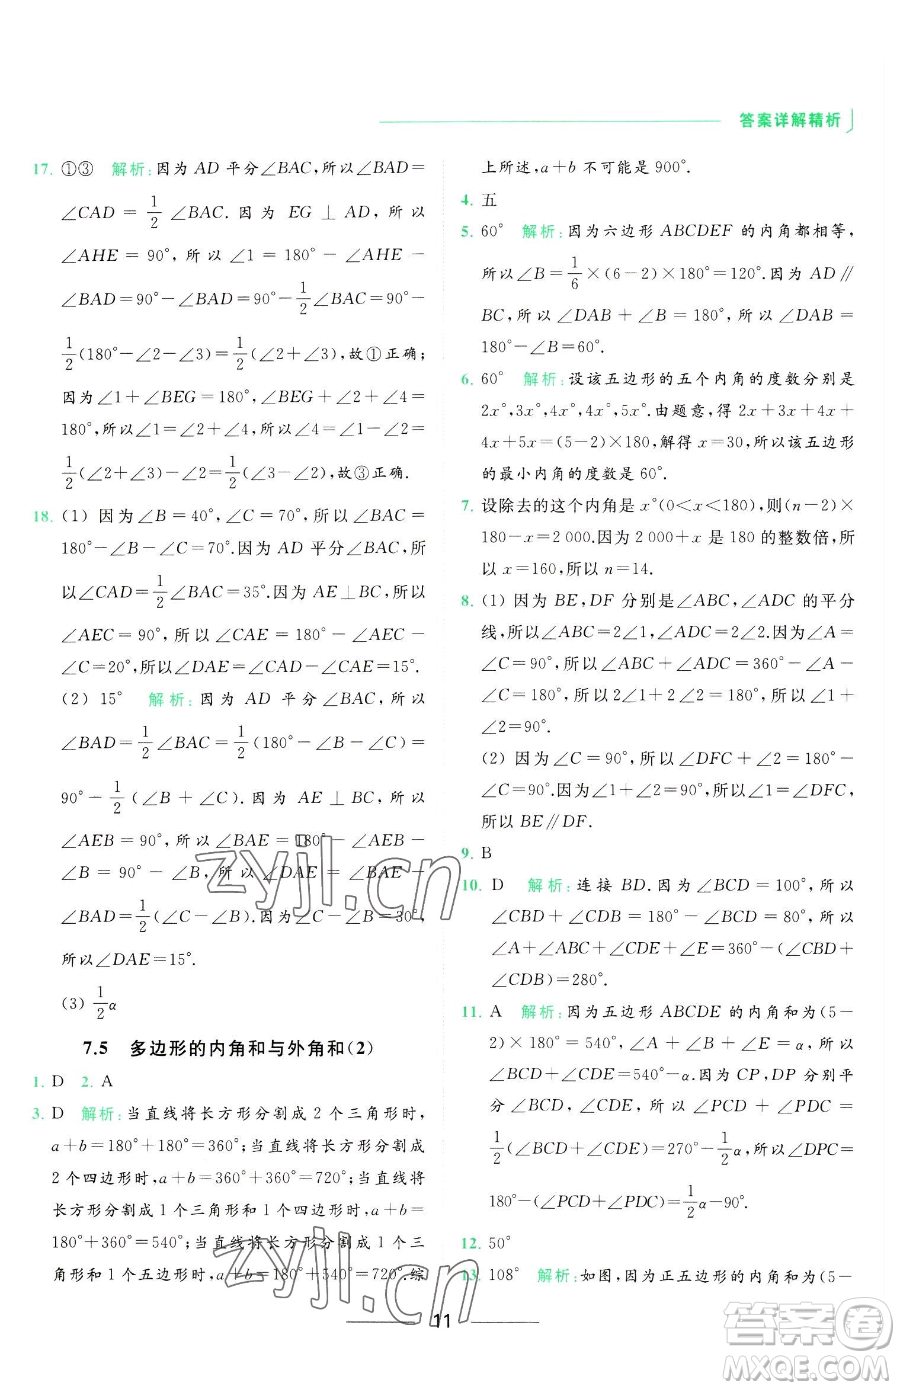 答案详解精析
17. ①③ 解析:因为 AD 平分∠BAC,所以∠BAD=
∠CAD = 1/2 ∠BAC. 因为 EG ⊥ AD, 所以
∠AHE = 90°, 所以 ∠1 = 180° - ∠AHE -
∠BAD=90°-∠BAD=90°-1/2∠BAC=90°-
1/2(180°-∠2-∠3)=1/2(∠2+∠3),故①正确;
因为∠1+∠BEG=180°,∠BEG+∠2+∠4=
180°,所以∠1=∠2+∠4,所以∠4=∠1-∠2=
1/2(∠2+∠3)-∠2=1/2(∠3-∠2),故③正确.
18. (1) 因为∠B=40°,∠C=70°,所以∠BAC=
180°-∠B-∠C=70°.因为 AD 平分∠BAC,所
以∠CAD=1/2∠BAC=35°.因为 AE⊥BC,所以
∠AEC = 90°, 所以 ∠CAE = 180° - ∠AEC -
∠C=20°,所以∠DAE=∠CAD-∠CAE=15°.
(2) 15° 解析:因为 AD 平分∠BAC,所以
∠BAD=1/2∠BAC=1/2(180°-∠B-∠C)=
90°-1/2(∠B+∠C).因为 AE⊥BC,所以
∠AEB = 90°, 所以 ∠BAE = 180° - ∠AEB -
∠B = 90° - ∠B, 所以 ∠DAE = ∠BAE -
∠BAD=1/2(∠C-∠B).因为∠C-∠B=30°,
所以∠DAE=15°.
(3) 1/2α
7.5 多边形的内角和与外角和(2)
1. D 2. A
3. D 解析:当直线将长方形分割成 2 个三角形时,
a+b=180°+180°=360°;当直线将长方形分割成
2 个四边形时,a+b=360°+360°=720°;当直线
将长方形分割成 1 个三角形和 1 个四边形时,a+b=
180°+360°=540°;当直线将长方形分割成 1 个三
角形和 1 个五边形时,a+b=180°+540°=720°.综
上所述,a+b 不可能是 900°.
4. 五
5. 60° 解析:因为六边形 ABCDEF 的内角都相等,
所以∠B=1/6×(6-2)×180°=120°.因为 AD∥
BC,所以∠DAB+∠B=180°,所以∠DAB=
180°-∠B=60°.
6. 60° 解析:设该五边形的五个内角的度数分别是
2x°,3x°,4x°,4x°,5x°.由题意,得 2x+3x+4x+
4x+5x=(5-2)×180,解得 x=30,所以该五边形
的最小内角的度数是 60°.
7. 设除去的这个内角是 x°(0<x<180),则(n-2)×
180-x=2 000.因为 2 000+x 是 180 的整数倍,所
以 x=160,所以 n=14.
8. (1) 因为 BE,DF 分别是∠ABC,∠ADC 的平分
线,所以∠ABC=2∠1,∠ADC=2∠2.因为∠A=
∠C=90°,所以∠ABC+∠ADC=360°-∠A-
∠C=180°,所以 2∠1+2∠2=180°,所以∠1+
∠2=90°.
(2) 因为∠C=90°,所以∠DFC+∠2=180°-
∠C=90°.因为∠1+∠2=90°,所以∠1=∠DFC,
所以 BE∥DF.
9. B
10. D 解析:连接 BD.因为∠BCD=100°,所以
∠CBD+∠CDB=180°-∠BCD=80°,所以
∠A+∠ABC+∠CDE+∠E=360°-(∠CBD+
∠CDB)=280°.
11. A 解析:因为五边形 ABCDE 的内角和为(5-
2)×180°=540°,∠A+∠B+∠E=α,所以
∠BCD+∠CDE=540°-α.因为 CP,DP 分别平
分∠BCD,∠CDE,所以∠PCD+∠PDC=
1/2(∠BCD+∠CDE)=270°-1/2α,所以∠DPC=
180°-(∠PCD+∠PDC)=1/2α-90°.
12. 50°
13. 108° 解析:如图,因为正五边形的内角和为(5-
11
zyjl.cn
zyjl.cn
答案圈
MXQE.COM